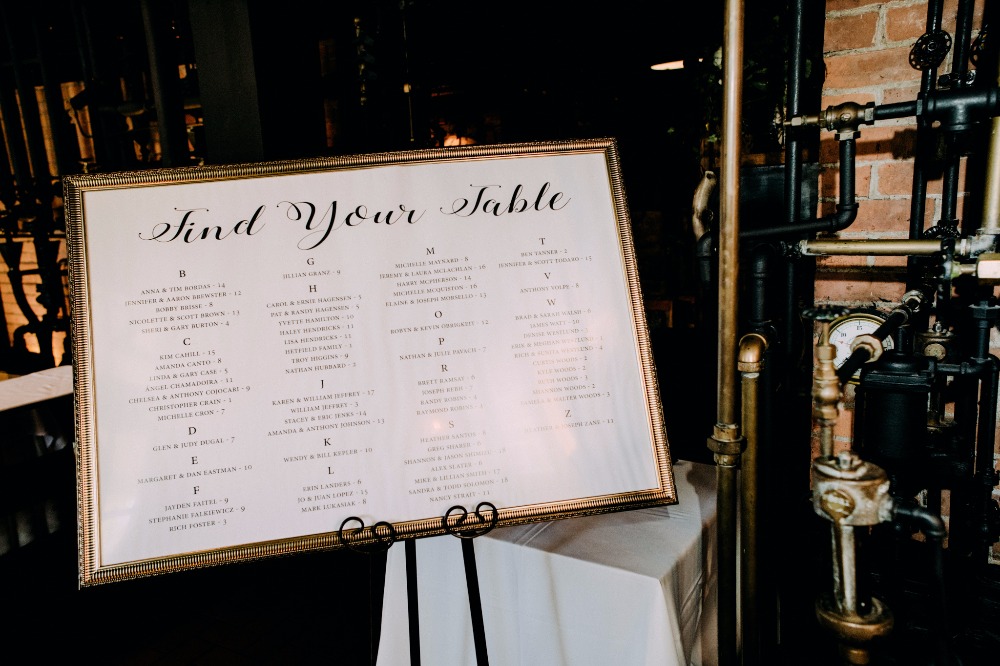 Find Your Table
B
ANNA & TIM BORDAS - 14
JENNIFER & AARON BREWSTER - 12
BOBBY BRISSE - 8
NICOLETTE & SCOTT BROWN - 13
SHERI & GARY BURTON - 4
C
KIM CAHILL - 15
AMANDA CANTO - 8
LINDA & GARY CASE - 5
ANGEL CHAMADOIRA - 11
CHELSEA & ANTHONY COJOCARI - 9
CHRISTOPHER CRAIN - 1
MICHELLE CRON - 7
D
GLEN & JUDY DUGAL - 7
E
MARGARET & DAN EASTMAN - 10
F
JAYDEN FAITEL - 9
STEPHANIE FALKIEWICZ - 9
RICH FOSTER - 3
G
JILLIAN GRANZ - 9
H
CAROL & ERNIE HAGENSEN - 5
PAT & RANDY HAGENSEN - 5
YVETTE HAMILTON - 10
HALEY HENDRICKS - 11
LISA HENDRICKS - 11
HETFIELD FAMILY - 1
TROY HIGGINS - 9
NATHAN HUBBARD - 2
J
KAREN & WILLIAM JEFFREY - 17
WILLIAM JEFFREY - 3
STACEY & ERIC JENKS - 14
AMANDA & ANTHONY JOHNSON - 13
K
WENDY & BILL KEPLER - 10
L
ERIN LANDERS - 6
JO & JUAN LOPEZ - 15
MARK LUKASIAK - 8
M
MICHELLE MAYNARD - 8
JEREMY & LAURA MCLACHLAN - 16
HARRY MCPHERSON - 14
MICHELLE MCQUISTON - 16
ELAINE & JOSEPH MORSELLO - 13
O
ROBYN & KEVIN OBRIGKEIT - 12
P
NATHAN & JULIE PAVACH - 7
R
BRETT RAMSAY - 6
JOSEPH REED - 7
RANDY ROBINS
RAYMOND
S
HEATHER SANTOS - 8
GREG SHARER - 6
SHANNON & JASON
ALEX SLATER - 6
MIKE & LILLIAN SMITH - 17
SANDRA & TODD SOLOMON - 18
NANCY STRAIT - 11
T
BEN TANNER - 2
JENNIFER & SCOTT TODARO - 13
V
ANTHONY VOLPE - 8
W
BRAD & SARAH WALSH - 6
JAMES WATT - 20
WESTLUND
WESTLUND
RICH & WESTLUND - 4
CURTIS WOODS - 2
KYLE WOODS - 2
RUTH WOODS - 3
SHANNON WOODS - 2
JAMES & WALTER WOODS - 3
Z
HEATHER & JOSEPH ZANE - 11